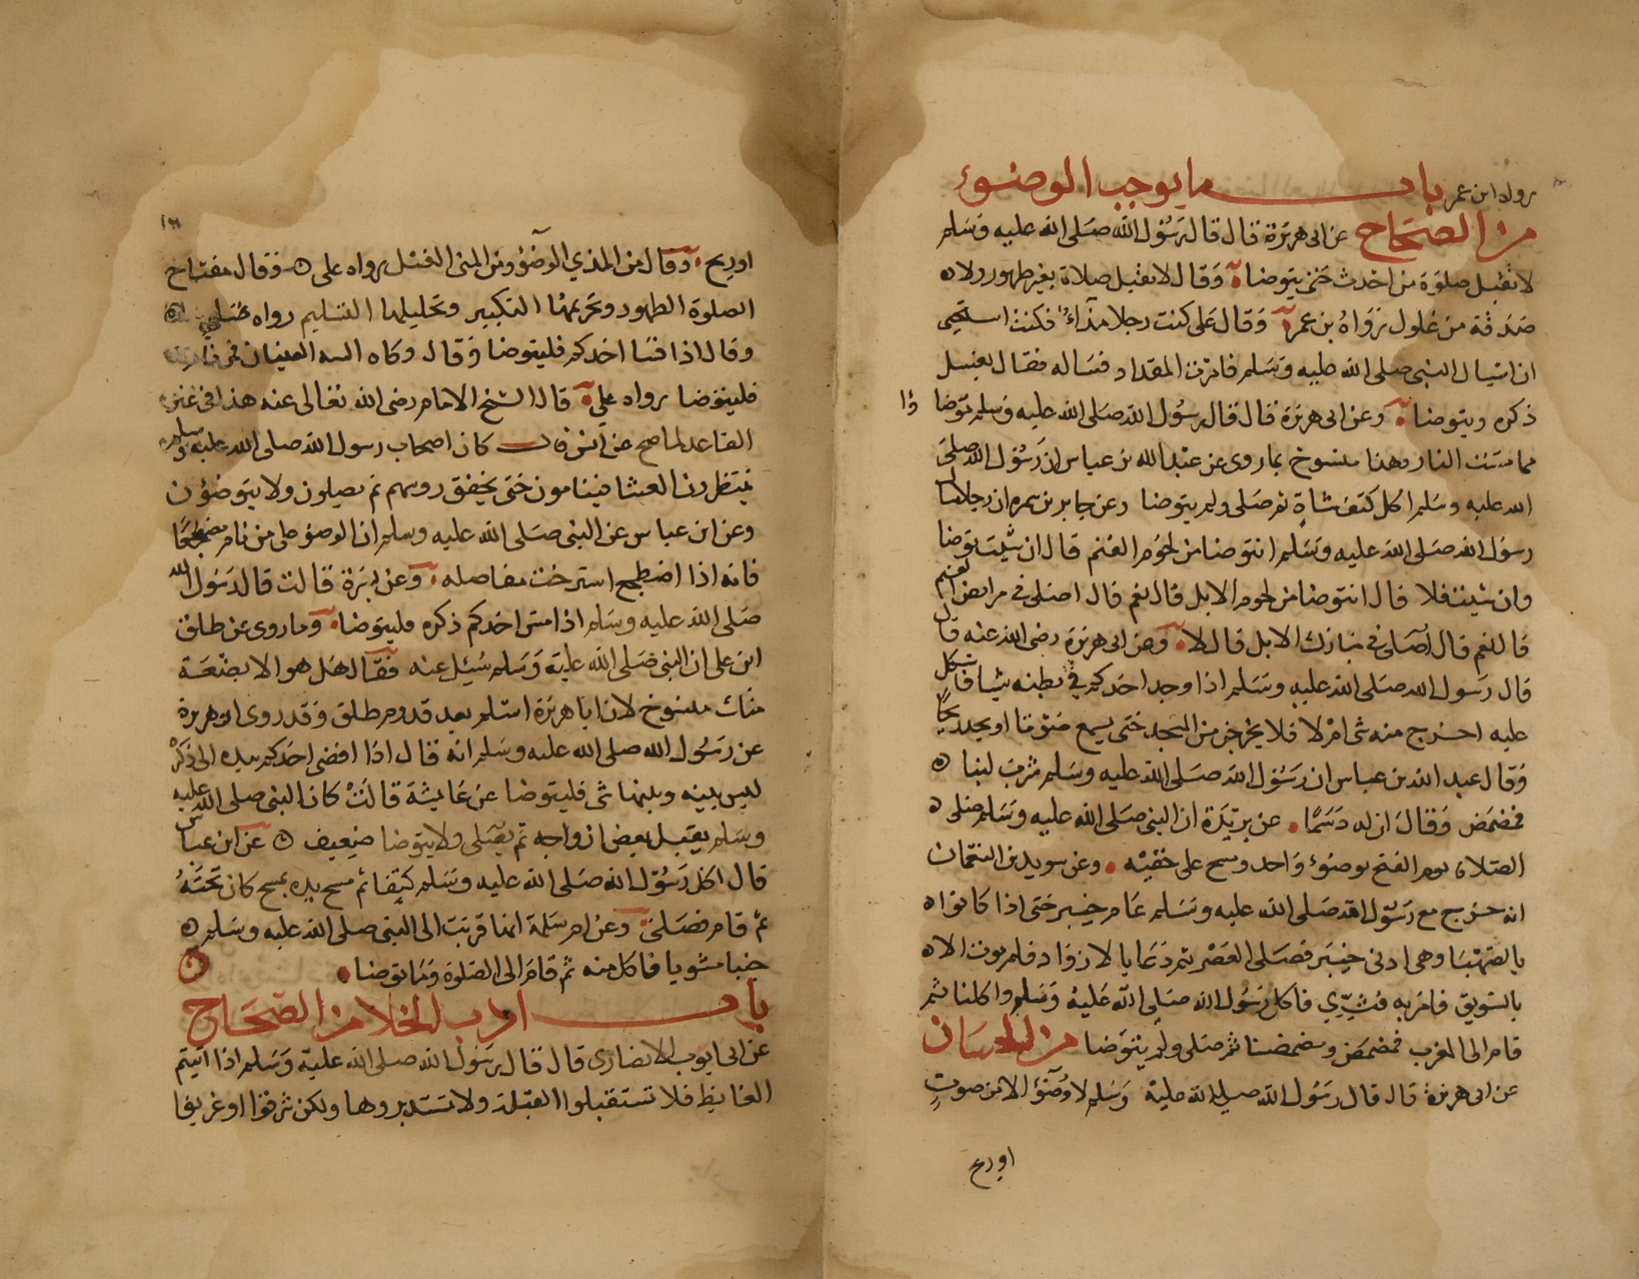 رواه ابن عمر باب ما يوجب الوضوء
من الصحاح عن ابى هريرة قال قال رسول الله صلى الله عليه وسلم
لا تقبل صلوة من احدث حتى يتوضا وقال لا تقبل صلاة بغير طهور ولا
صدقة من غلول رواه بن عمر وقال على كنت رجلا مذاء فكنت استحيى
ان اسال النبى صلى الله عليه وسلم فامرت المقداد فساله فقال يغسل
ذكره ويتوضا وعن ابى هريرة قال قال رسول الله صلى الله عليه وسلم توضا وا
مما مست النار وهذا منسوخ بما روى عن عبد الله بن عباس ان رسول الله صلى
الله عليه وسلم اكل كتف شاة ثم صلى ولم يتوضا وعن جابر بن سمره ان رجلا سال
رسول الله صلى الله عليه وسلم انتوضا من لحوم الغنم قال ان شيت توضا
وان شيت فلا قال انتوضا من لحوم الابل قال نعم قال اصلى فى مرابض الغنم
قال نعم قال اصلى فى مبارك الابل قال لا وعن ابى هريرة رضى الله عنه قال
قال رسول الله صلى الله عليه وسلم اذا وجد احدكم فى بطنه شيا فاشكل
عليه اخرج منه شى ام لا فلا يخرجن من المسجد حتى يسمع صوتا او يجد ريحا
وقال عبد الله بن عباس ان رسول الله صلى الله عليه وسلم شرب لبنا
فمضمض وقال ان له دسما عن بريدة ان النبى صلى الله عليه وسلم صلى
الصلاة يوم الفتح بوضوء واحد ومسح على خفيه وعن سويد بن النعمان
انه خرج مع رسول الله صلى الله عليه وسلم عام خيبر حتى اذا كانوا
بالصهبا وهى ادنى خيبر فصلى العصر ثم دعا بالازواد فلم يوت الا
بالسويق فامر به فثرى فاكل رسول الله صلى الله عليه وسلم واكلنا ثم
قام الى المغرب فمضمض ومضمضنا ثم صلى ولم يتوضا من الحسان
عن ابى هريرة قال قال رسول الله صلى الله عليه وسلم لا وضوء الا من صوت
او ريح
او ريح وقال من المذي الوضوء ومن المنى الغسل رواه على وقال مفتاح
الصلوة الطهور وتحريمها التكبير وتحليلها التسليم رواه على
وقال اذا فسا احدكم فليتوضا وقال وكاه السه العينان فمن نام
فليتوضا رواه على قال الشيخ الامام رضى الله تعالى عنه هذا فى غير
القاعد لما صح عن انس قال كان اصحاب رسول الله صلى الله عليه وسلم
ينتظرون العشا فينامون حتى يخفق روسهم ثم يصلون ولا يتوضؤن
وعن ابن عباس عن النبى صلى الله عليه وسلم ان الوضو على من نام مضطجعا
فانه اذا اضطجع استرخت مفاصله وعن بسرة قالت قال رسول الله
صلى الله عليه وسلم اذا مس احدكم ذكره فليتوضا وما روى عن طلق
ابن على ان النبى صلى الله عليه وسلم سئيل عنه فقال هل هو الا بضعة
منك منسوخ لان ابا هريرة اسلم بعد قدوم طلق وقد روى ابو هريرة
عن رسول الله صلى الله عليه وسلم انه قال اذا افضى احدكم بيده الى ذكره
ليس بينه وبينها شى فليتوضا عن عايشة قالت كان النبى صلى الله عليه
وسلم يقبل بعض ازواجه ثم يصلى ولا يتوضا ضعيف عن ابن عباس
قال اكل رسول الله صلى الله عليه وسلم كتفا ثم مسح يده بمسح كان تحته
ثم قام فصلى وعن ام سلمة انها قربت الى النبى صلى الله عليه وسلم
جنبا مشويا فاكل منه ثم قام الى الصلوة وما توضا
باب ادب الخلا من الصحاح
عن ابى ايوب الانصارى قال قال رسول الله صلى الله عليه وسلم اذا اتيتم
الغايط فلا تستقبلوا القبلة ولا تستدبروها ولكن شرقوا او غربوا